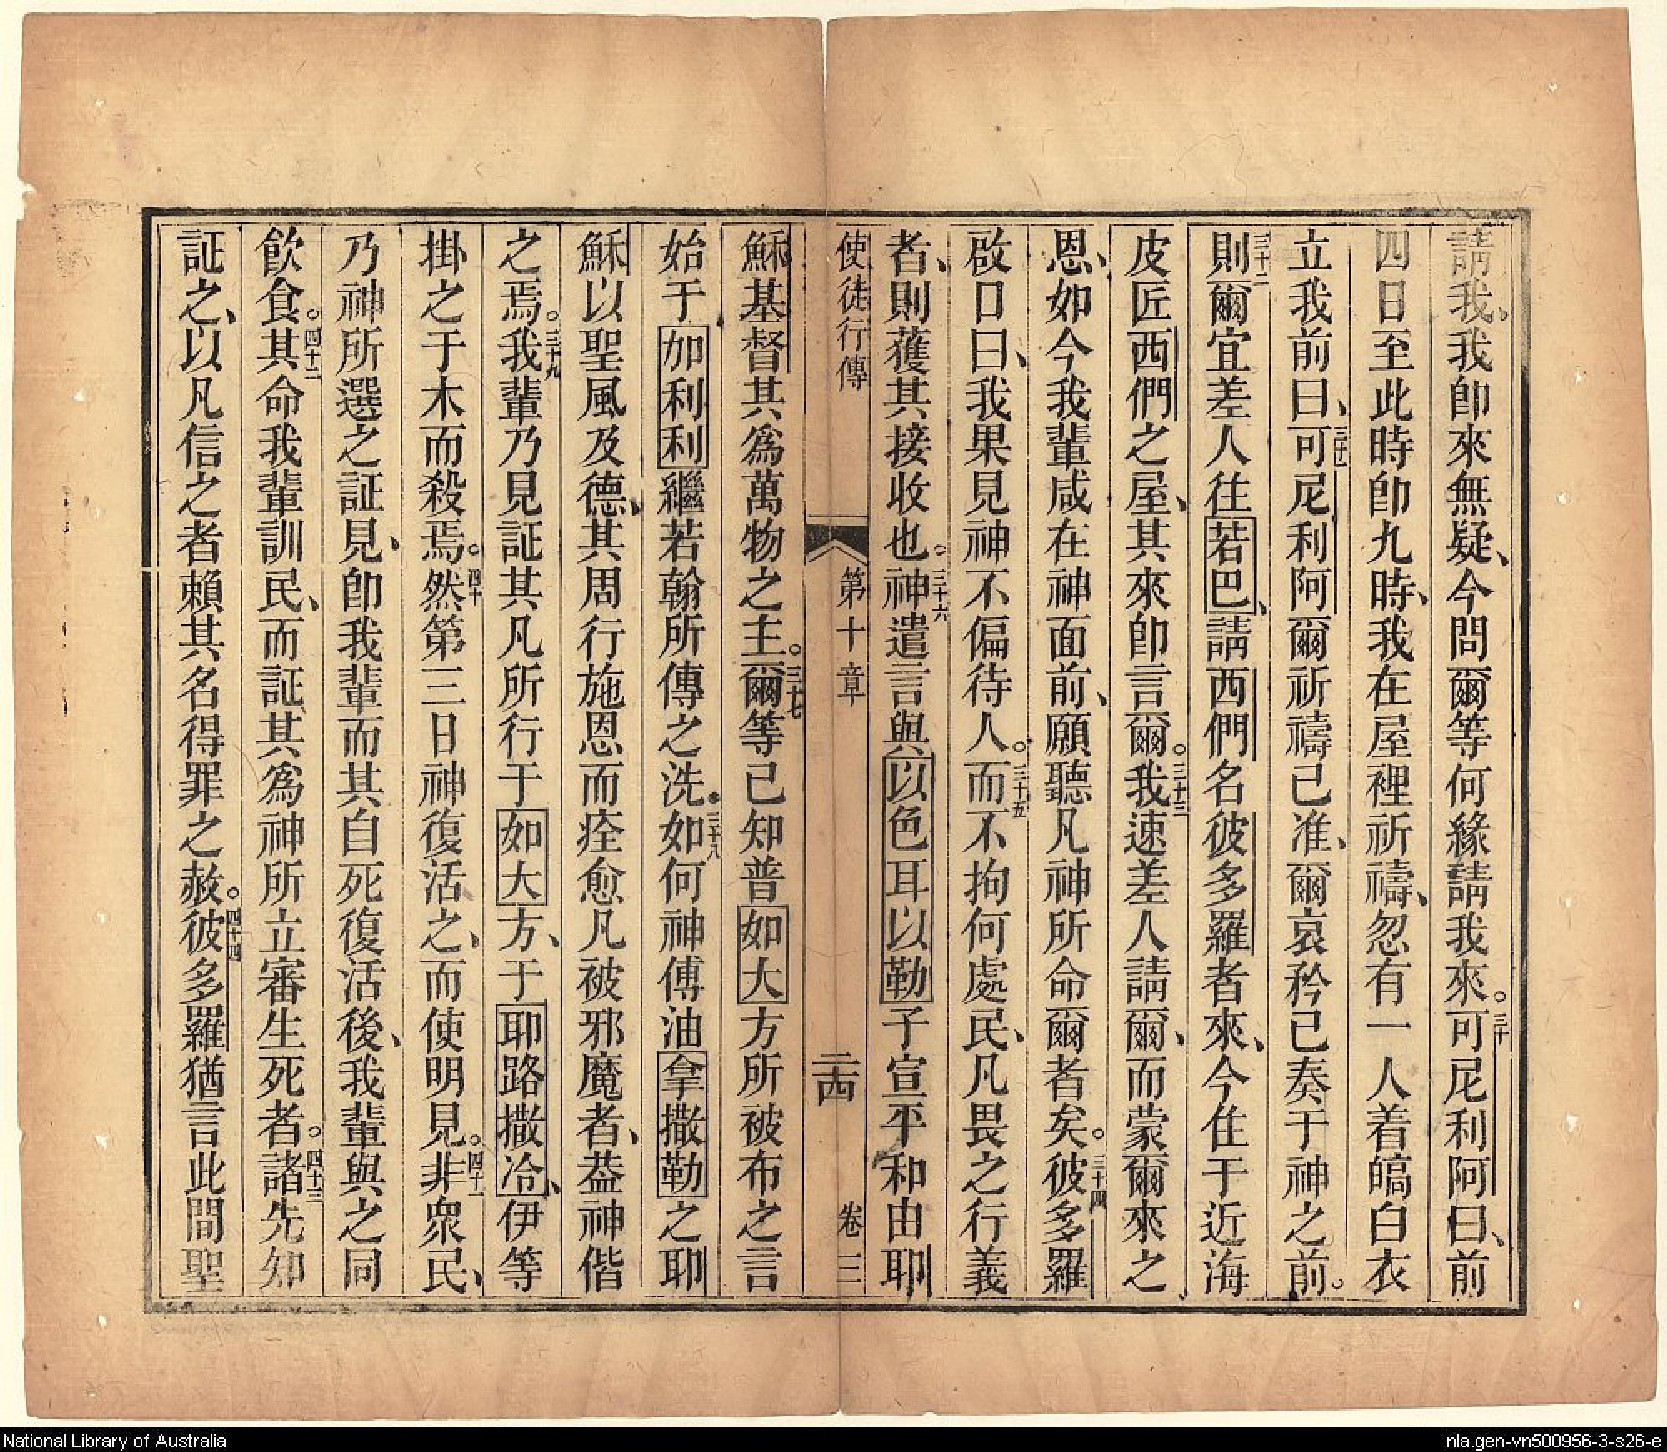 請我。我卽來無疑、今問爾等何緣請我來。三十可尼利阿曰、前
四日至此時卽九時、我在屋裡祈禱、忽有一人着皜白衣
立我前曰、三十一可尼利阿爾祈禱已准、爾哀矜已奏于神之前。
三十二則爾宜差人往若巴、請西們名彼多羅者來、今住于近海
皮匠西們之屋、其來卽言爾。三十三我速差人請爾、而蒙爾來之
恩、如今我輩咸在神面前、願聽凡神所命爾者矣。三十四彼多羅
啟口曰、我果見神不偏待人。三十五而不拘何處民、凡畏之行義
者、則獲其接收也。三十六神遣言與以色耳以勒子宣平和由耶
使徒行傳 第十章 二四 卷三
穌基督其爲萬物之主。三十七爾等已知普如大方所被布之言
始于加利利繼若翰所傳之洗。三十八如何神傅油拿撒勒之耶
穌以聖風及德、其周行施恩而痊愈凡被邪魔者、葢神偕
之焉。三十九我輩乃見証其凡所行于如大方、于耶路撒冷、伊等
掛之于木而殺焉。四十然第三日神復活之、而使明見。四十一非衆民、
乃神所選之証見、卽我輩而其自死復活後、我輩與之同
飲食。四十二其命我輩訓民、而証其爲神所立審生死者。四十三諸先知
証之、以凡信之者賴其名得罪之赦。四十四彼多羅猶言此間聖
National Library of Australia
nla.gen-vn500956-3-s26-e